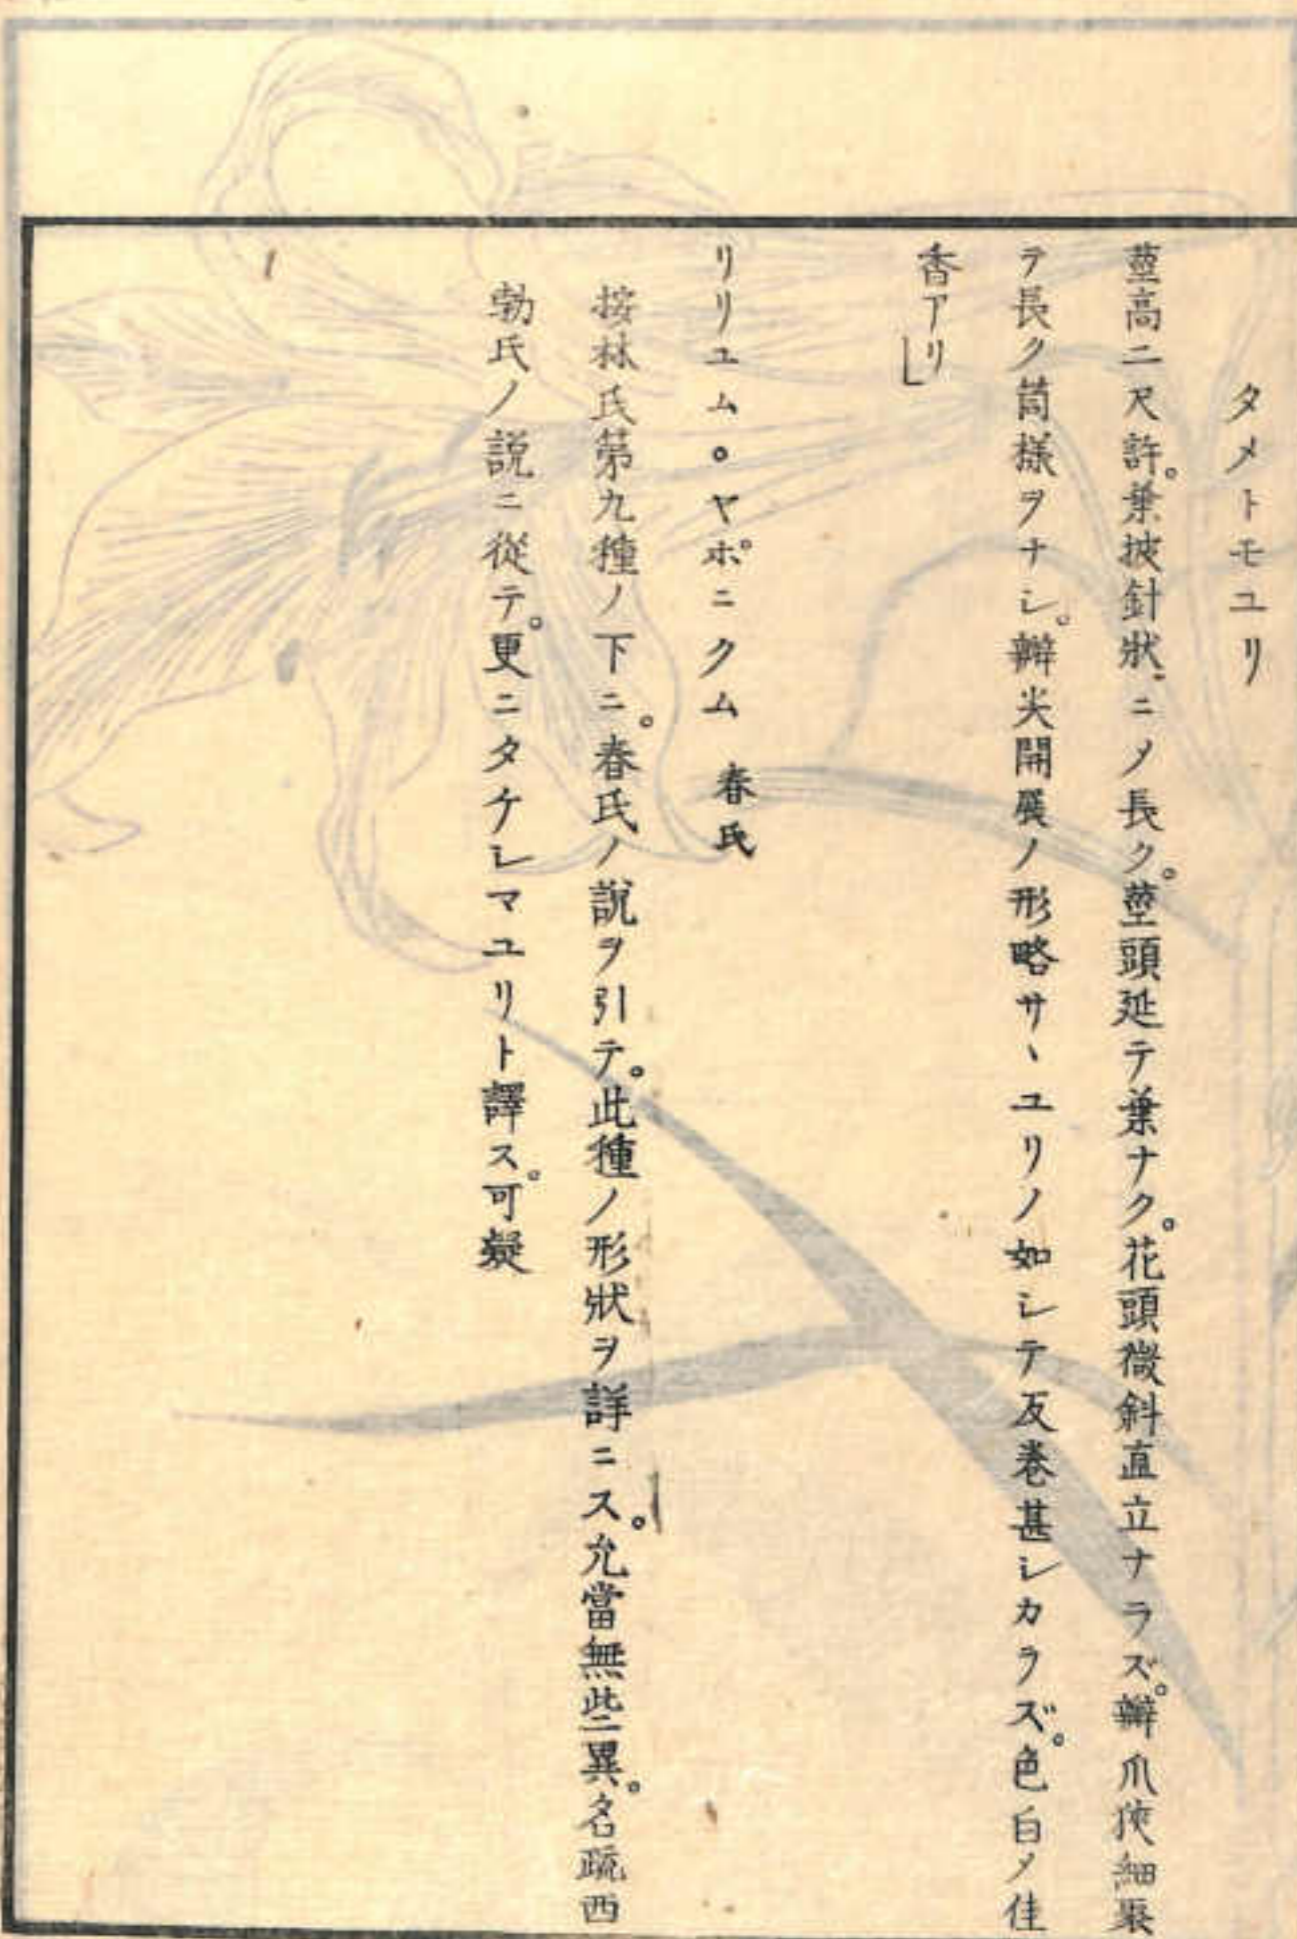 タメトモユリ
莖高二尺許。葉披針狀ニメ長ク。莖頭延テ葉ナク。花頭微斜直立ナラズ。瓣爪狹細聚
テ長ク筒様ヲナシ。瓣尖開展ノ形略サヽユリノ如シテ反巻甚シカラズ。色白メ佳
香アリ」
リリユム。ヤポニクム 春氏
按林氏第九種ノ下ニ。春氏ノ說ヲ引テ。此種ノ形狀ヲ詳ニス。允當無些異。名疏西
勃氏ノ説ニ從テ。更ニタケシマユリト譯ス。可疑